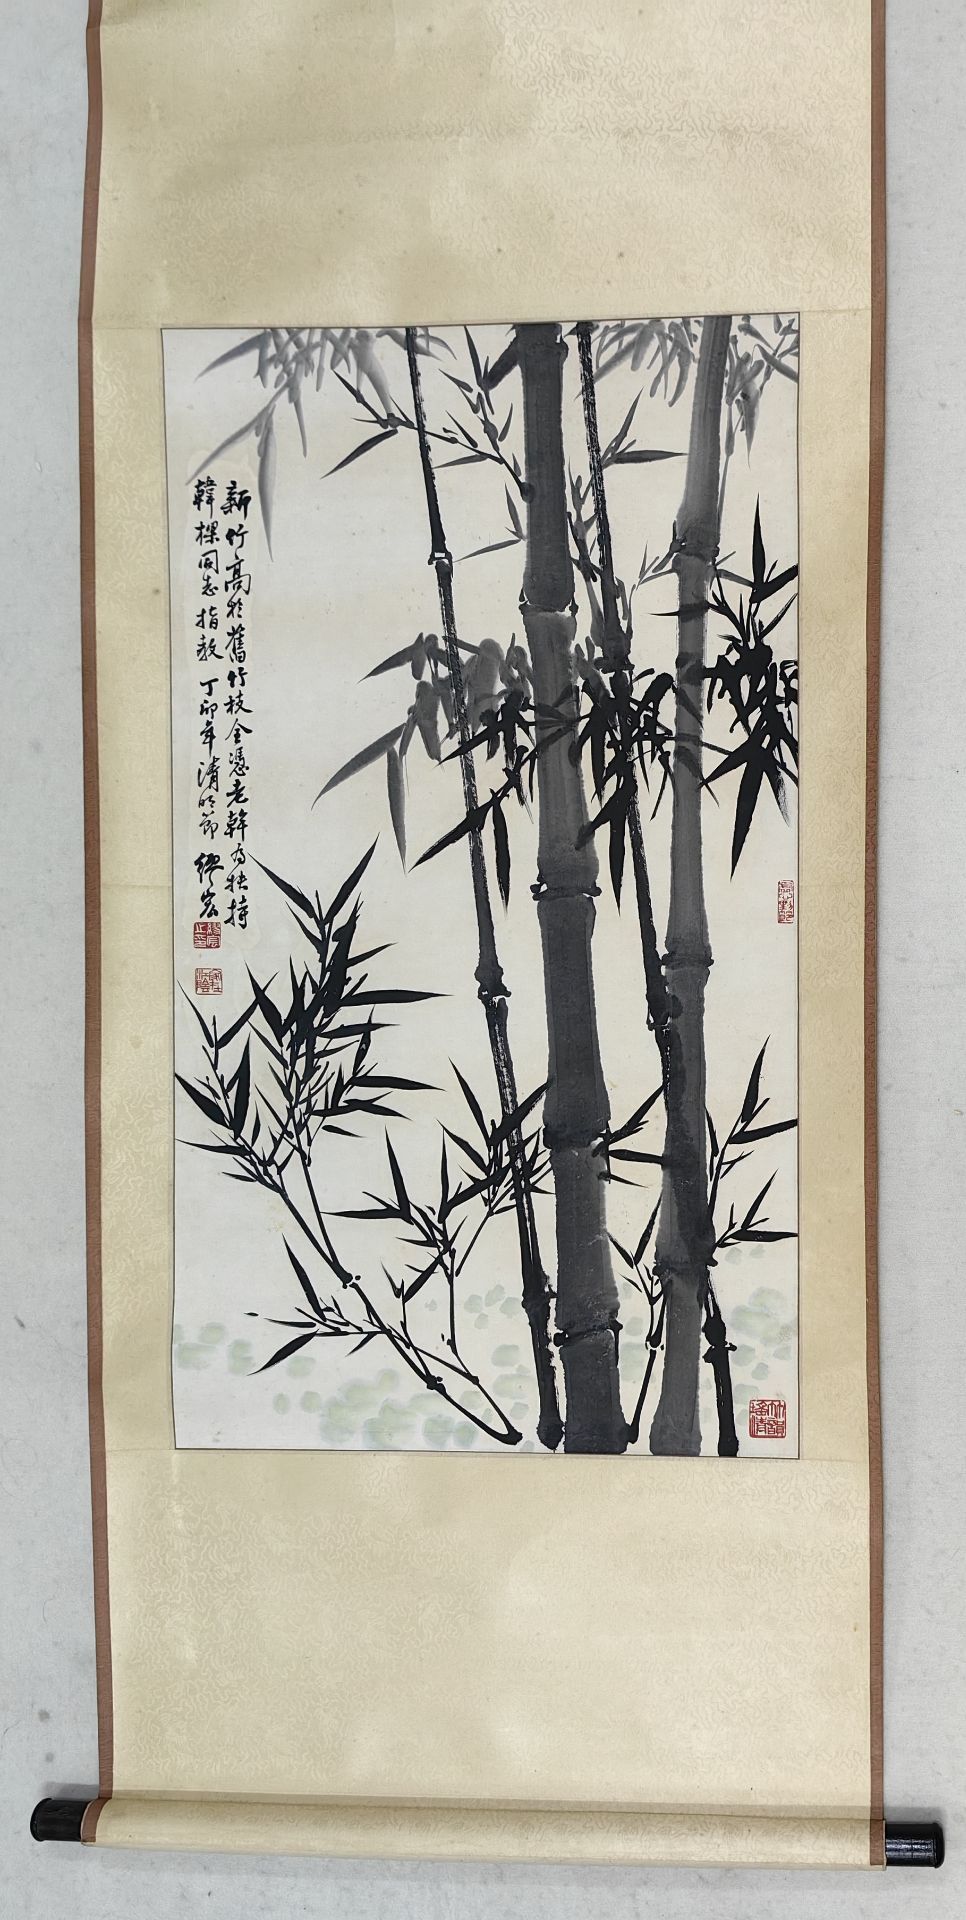 新竹高於舊竹枝全憑老幹為扶持
韓樑同志指教 丁卯年清明節 繆宏
竹韻